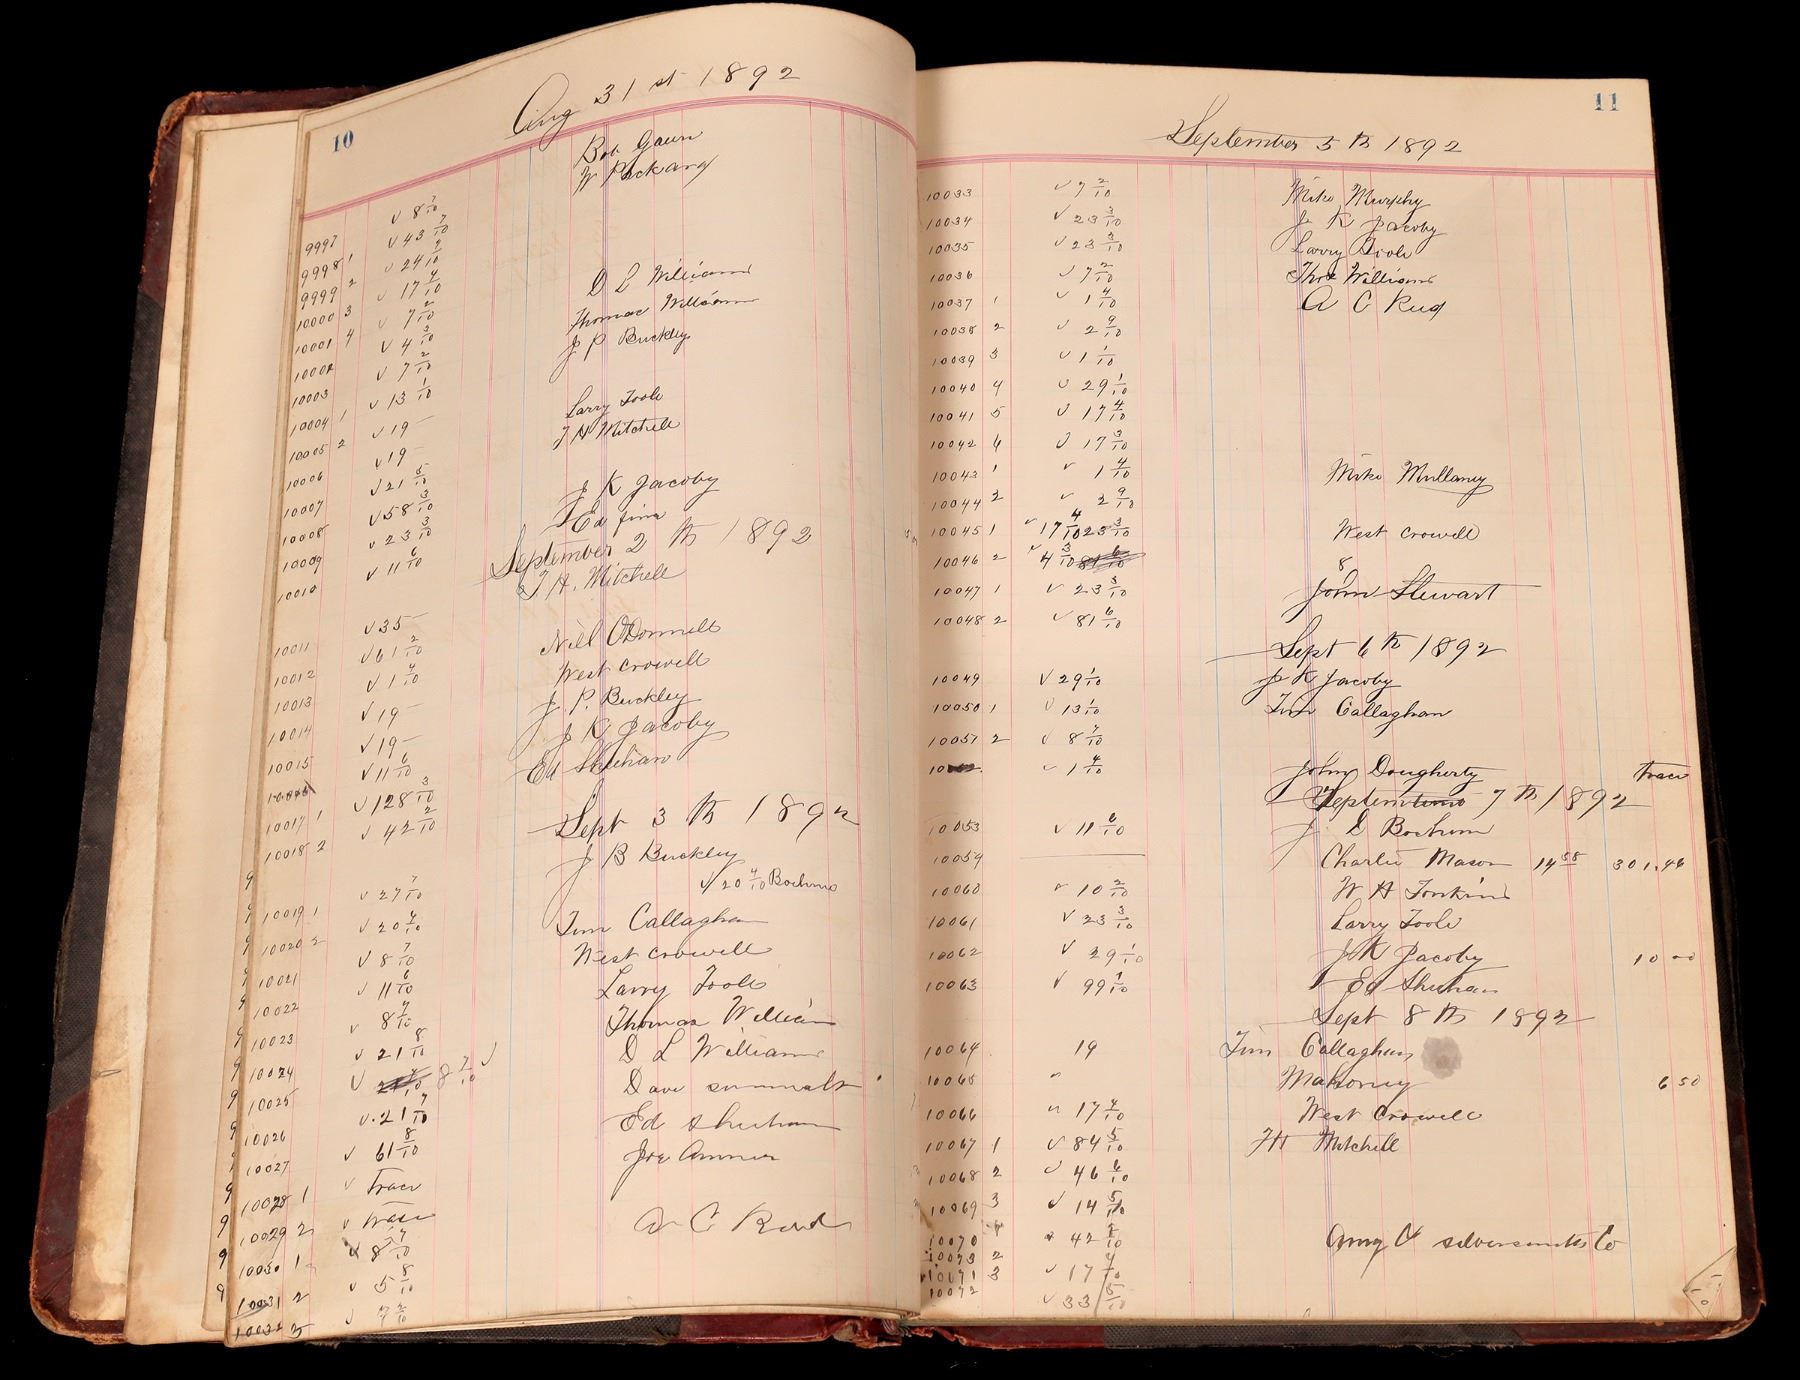 10
Aug 31st 1892
Bob Gaun
W Packard
9997 v 8 7/10
9998 1 v 43 7/10
9999 2 v 24 2/10
10000 3 v 17 4/10 D L Williams
10001 4 v 7 2/10 Thomas Williams
10002 v 4 3/10 J P Buckley
10003 v 7 2/10
10004 1 v 13 1/10 Larry Toole
10005 2 v 19 - T H Mitchell
10006 v 19 -
10007 v 21 5/10 J K Jacoby
10008 v 58 3/10 Ed
10009 v 23 3/10
September 2th 1892
10010 v 11 6/10 T H. Mitchell
10011 v 35 - Niel O'Donnell
10012 v 61 2/10 West Crowell
10013 v 1 4/10 J. P. Buckley
10014 v 19 - J K Jacoby
10015 v 19 - Ed Shuhan
v 11 6/10
10017 1 v 128 3/10
Sept 3th 1892
10018 2 v 42 2/10 J B Buckley
v 20 4/10 Bochms
10019 1 v 27 7/10 Tim Callaghan
10020 2 v 20 4/10 West Crowell
10021 v 8 7/10 Larry Toole
10022 v 11 6/10 Thomas William
10023 v 8 4/10 D L Williams
10024 v 21 8/10 Dave
10025 v 8 7/10 v Ed Shuhan
10026 v 21 7/10 Joe
10027 v 61 8/10
10028 1 v Trace
10029 2 v Trace A C
10030 1 v 8 7/10
10031 2 v 5 8/10
10032 3 v 7 2/10
11
September 5th 1892
10033 v 7 2/10 Mike Murphy
10034 v 23 3/10 J K Jacoby
10035 v 23 3/10 Larry Toole
10036 v 7 2/10 Thos Williams
10037 1 v 1 4/10 A C Rud
10038 2 v 2 9/10
10039 3 v 1 1/10
10040 4 v 29 1/10
10041 5 v 17 4/10
10042 6 v 17 3/10
10043 1 v 1 4/10 Mike Mullaney
10044 2 v 2 9/10
10045 1 v 17 4/10 23 3/10 West Crowell
10046 2 v 4 3/10 8
10047 1 v 23 3/10 John Stewart
10048 2 v 81 6/10
Sept 6th 1892
10049 v 29 1/10 J K Jacoby
10050 1 v 13 1/10 Tim Callaghan
10051 2 v 8 7/10
v 1 4/10 John Dougherty trace
September 7th 1892
10053 v 11 6/10 J. D Bochum
10059 Charlie Mason 14 58 301.46
10060 v 10 2/10 W H Tonkins
10061 v 23 3/10 Larry Toole
10062 v 29 1/10 J K Jacoby 10 00
10063 v 99 1/10 Ed Shuhan
Sept 8th 1892
10064 19 Tim Callaghan
10065 Mahoney 6 50
10066 17 4/10 West Crowell
10067 1 v 84 5/10 T H Mitchell
10068 2 v 46 6/10
10069 3 v 14 5/10
10070 4 42 2/10 Amy & silversmith Co
10073 2
10071 3 v 17 4/10
10072 v 33 5/10